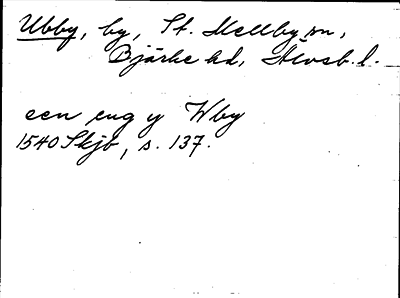 Ubby, by, St. Mellby sn,
Bjärke hd, Älvsb. l.
een eng y Wby
1540 Skjb, s. 137.